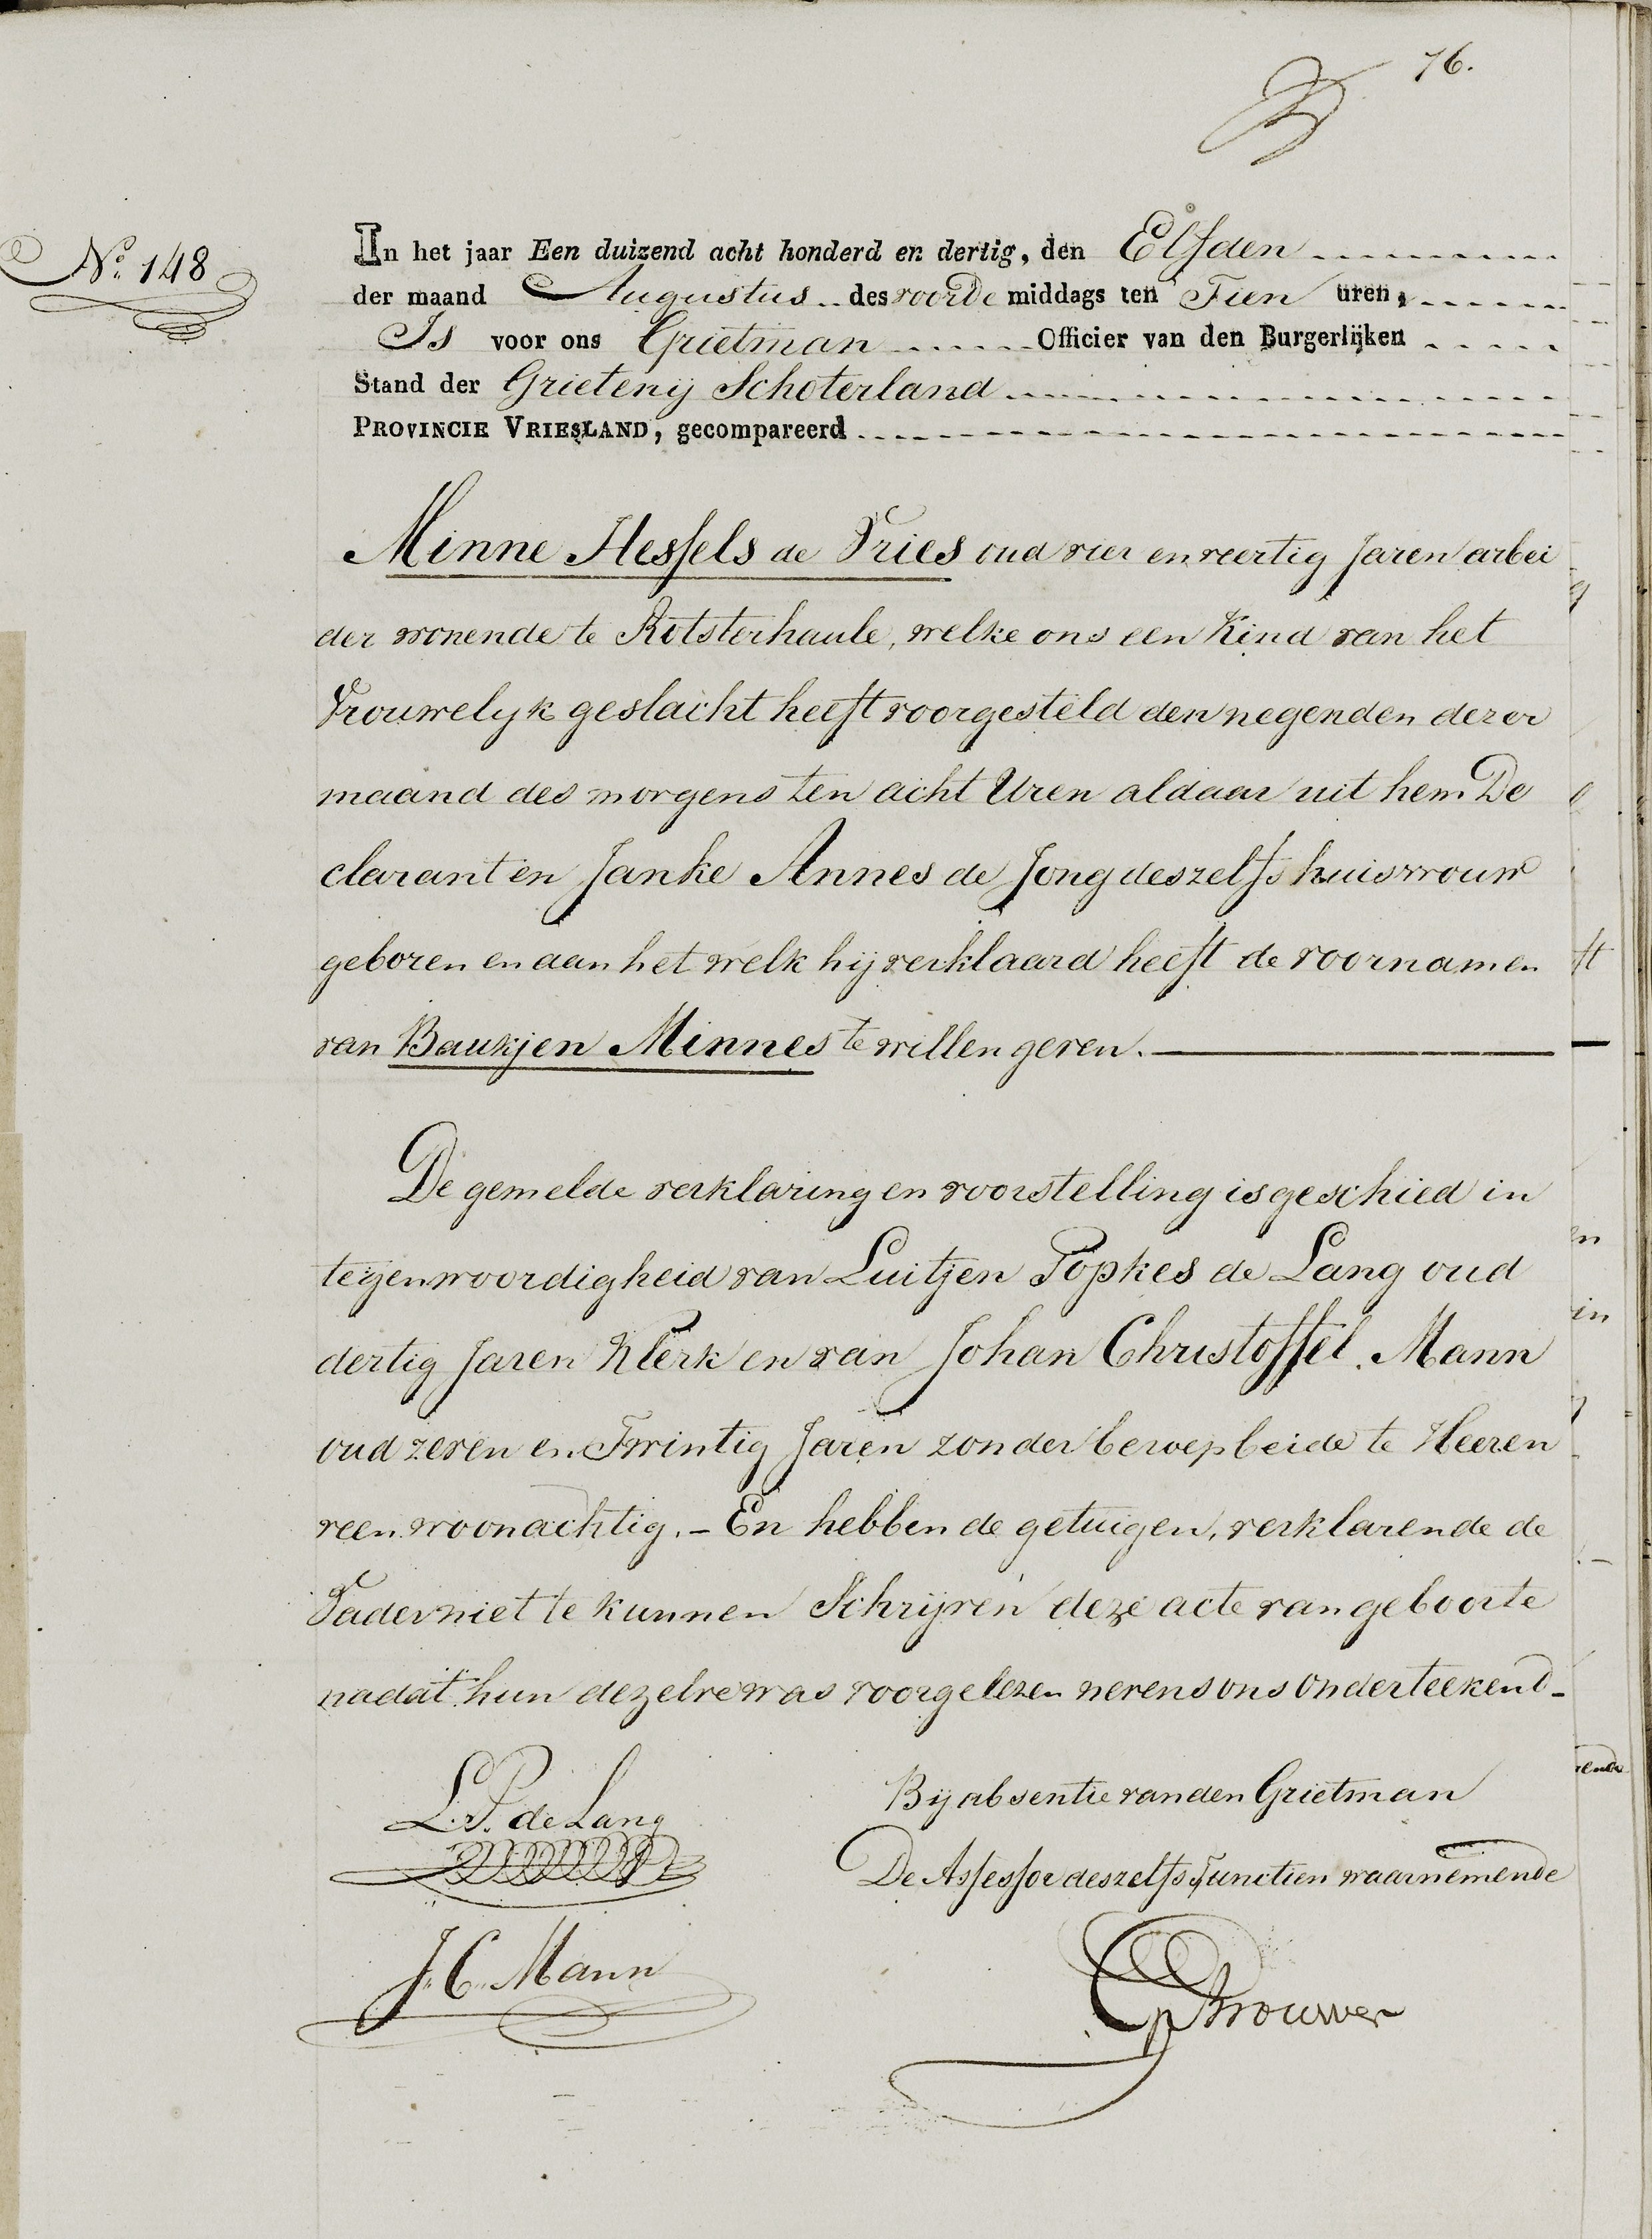 76.
No. 148
In het jaar Een duizend acht honderd en dertig, den Elfden
der maand Augustus des voorde middags ten Tien uren,
Is voor ons Grietman Officier van den Burgerlijken
Stand der Grietenij Schoterland
PROVINCIE VRIESLAND, gecompareerd
Minne Hessels de Vries oud vier en veertig Jaren arbei
der wonende te Rotsterhaule, welke ons een Kind van het
Vrouwelyk geslacht heeft voorgesteld den negenden dezer
maand des morgens ten acht Uren aldaar uit hem De
clarant en Janke Annes de Jong deszelfs huisvrouw
geboren en aan het welk hij verklaard heeft de voornamen
van Baukjen Minnes te willen geven.
De gemelde verklaring en voorstelling is geschied in
tegenwoordigheid van Luitjen Popkes de Lang oud
dertig Jaren Klerk en van Johan Christoffel Mann
oud zeven en Twintig Jaren zonder beroep beide te Heeren
veen woonachtig. - En hebben de getuigen, verklarende de
Vader niet te kunnen Schrijven deze acte van geboorte
nadat hun dezelve was voorgelezen nevens ons onderteekend -
L. P. de Lang
Bij absentie van den Grietman
De Assessor deszelfs Functien waarnemende
J. C. Mann
Brouwer